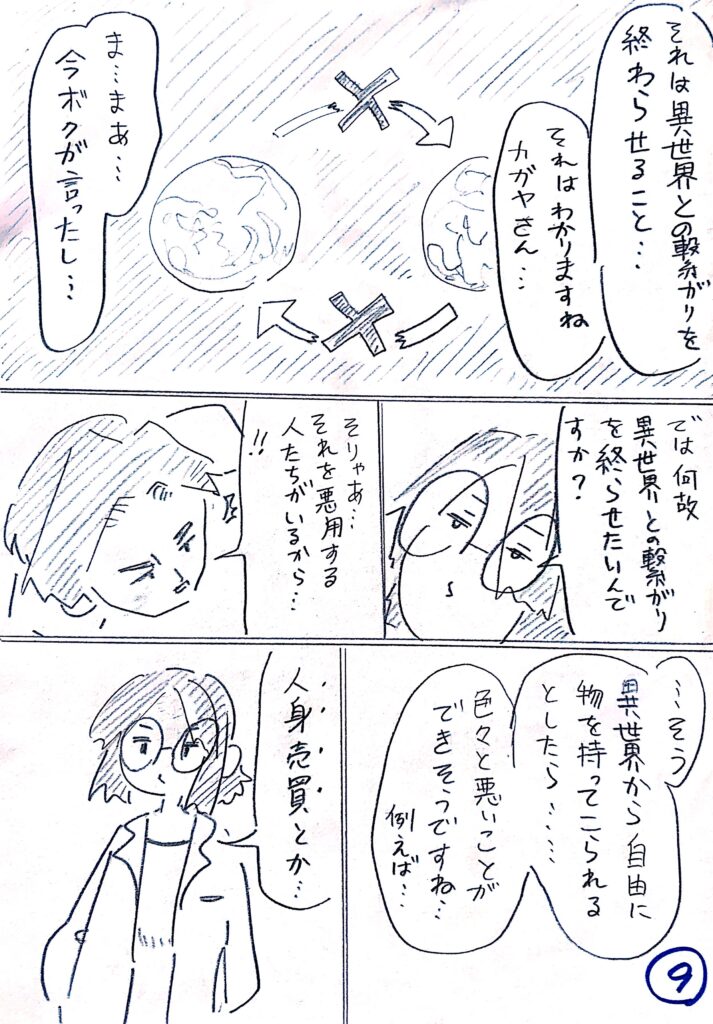 それは異世界との繋がりを
終わらせること…
それはわかりますね
カガヤさん…
ま…まあ…
今ボクが言ったし…
では何故
異世界との繋がり
を終らせたいんで
すか？
そりゃあ…
それを悪用する
人たちがいるから…
!!
…そう
異世界から自由に
物を持ってこられる
としたら……
色々と悪いことが
できそうですね…
例えば…
人身売買とか…
9